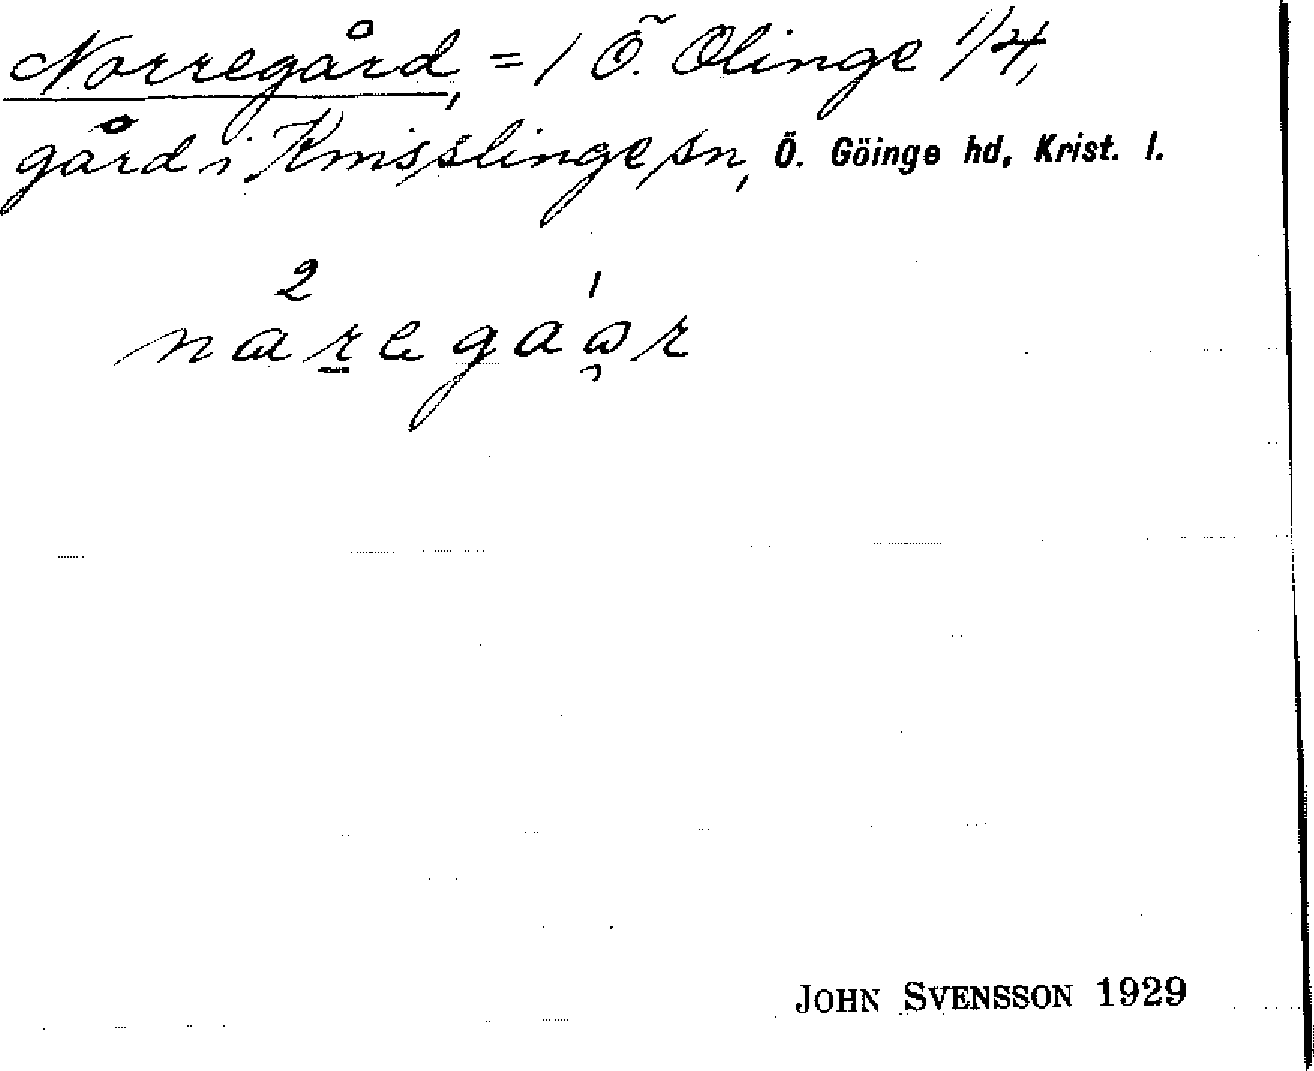 Norregård, = 1 Ö. Olinge 1/4,
gård i Knisslinge sn, Ö. Göinge hd, Krist. l.
2 1
naregaar
JOHN SVENSSON 1929